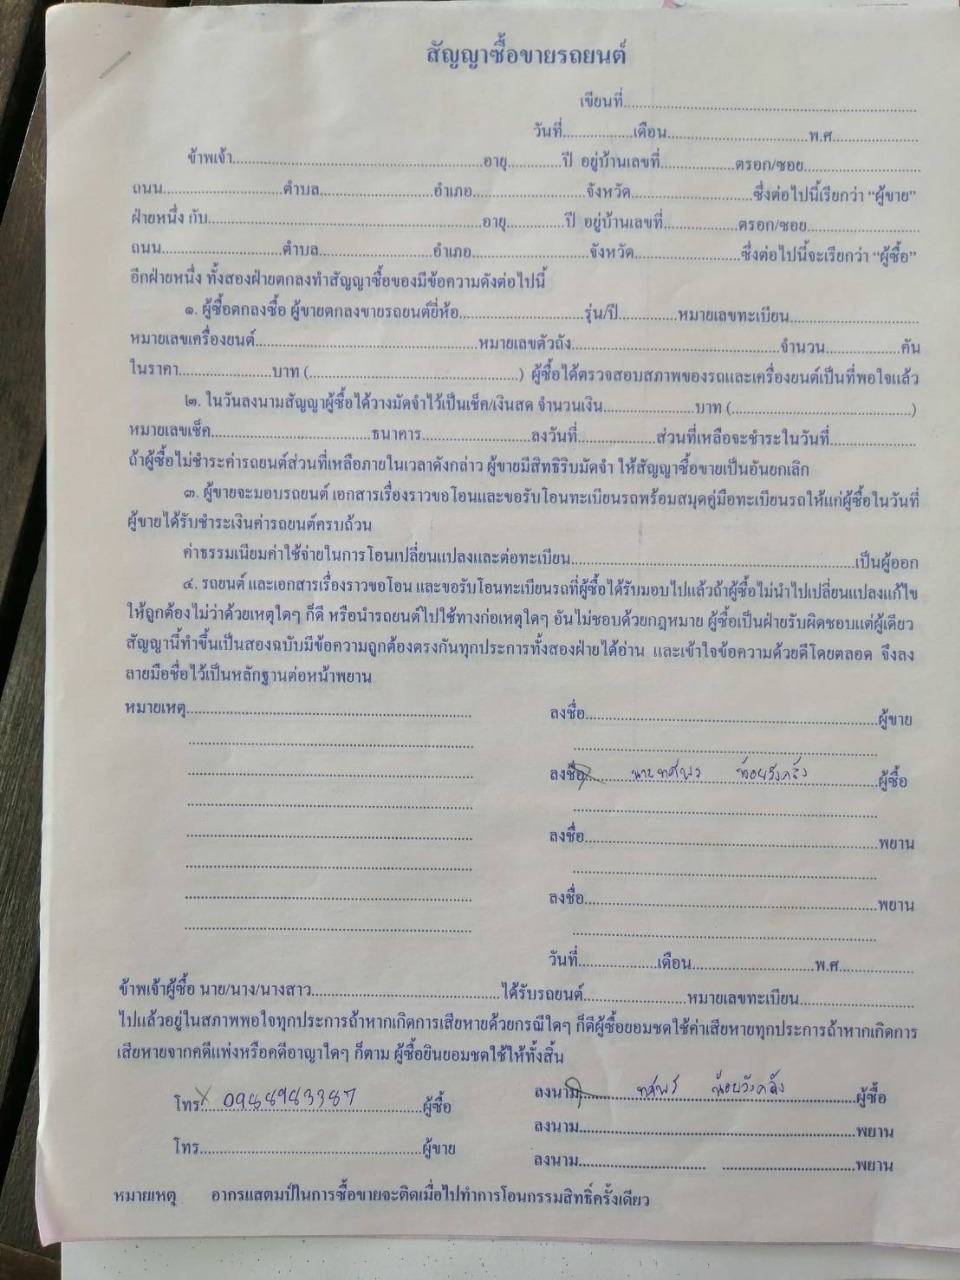 สัญญาซื้อขายรถยนต์
เขียนที่
วันที่ เดือน พ.ศ.
ข้าพเจ้า อายุ ปี อยู่บ้านเลขที่ ตรอก/ซอย
ถนน ตำบล อำเภอ จังหวัด ซึ่งต่อไปนี้เรียกว่า “ผู้ขาย”
ฝ่ายหนึ่ง กับ อายุ ปี อยู่บ้านเลขที่ ตรอก/ซอย
ถนน ตำบล อำเภอ จังหวัด ซึ่งต่อไปนี้จะเรียกว่า “ผู้ซื้อ”
อีกฝ่ายหนึ่ง ทั้งสองฝ่ายตกลงทำสัญญาซื้อของมีข้อความดังต่อไปนี้
๑. ผู้ซื้อตกลงซื้อ ผู้ขายตกลงขายรถยนต์ยี่ห้อ รุ่น/ปี หมายเลขทะเบียน
หมายเลขเครื่องยนต์ หมายเลขตัวถัง จำนวน คัน
ในราคา บาท ( ) ผู้ซื้อได้ตรวจสอบสภาพของรถและเครื่องยนต์เป็นที่พอใจแล้ว
๒. ในวันลงนามสัญญาผู้ซื้อได้วางมัดจำไว้เป็นเช็ค/เงินสด จำนวนเงิน บาท ( )
หมายเลขเช็ค ธนาคาร ลงวันที่ ส่วนที่เหลือจะชำระในวันที่
ถ้าผู้ซื้อไม่ชำระค่ารถยนต์ส่วนที่เหลือภายในเวลาดังกล่าว ผู้ขายมีสิทธิริบมัดจำ ให้สัญญาซื้อขายเป็นอันยกเลิก
๓. ผู้ขายจะมอบรถยนต์ เอกสารเรื่องราวขอโอนและขอรับโอนทะเบียนรถพร้อมสมุดคู่มือทะเบียนรถให้แก่ผู้ซื้อในวันที่
ผู้ขายได้รับชำระเงินค่ารถยนต์ครบถ้วน
ค่าธรรมเนียมค่าใช้จ่ายในการโอนเปลี่ยนแปลงและต่อทะเบียน เป็นผู้ออก
๔. รถยนต์ และเอกสารเรื่องราวขอโอน และขอรับโอนทะเบียนรถที่ผู้ซื้อได้รับมอบไปแล้วถ้าผู้ซื้อไม่นำไปเปลี่ยนแปลงแก้ไข
ให้ถูกต้องไม่ว่าด้วยเหตุใดๆ ก็ดี หรือนำรถยนต์ไปใช้ทางก่อเหตุใดๆ อันไม่ชอบด้วยกฎหมาย ผู้ซื้อเป็นฝ่ายรับผิดชอบแต่ผู้เดียว
สัญญานี้ทำขึ้นเป็นสองฉบับมีข้อความถูกต้องตรงกันทุกประการทั้งสองฝ่ายได้อ่าน และเข้าใจข้อความด้วยดีโดยตลอด จึงลง
ลายมือชื่อไว้เป็นหลักฐานต่อหน้าพยาน
หมายเหตุ ลงชื่อ ผู้ขาย
ลงชื่อ นายทศพร น้อยวังคลัง ผู้ซื้อ
ลงชื่อ พยาน
ลงชื่อ พยาน
วันที่ เดือน พ.ศ.
ข้าพเจ้าผู้ซื้อ นาย/นาง/นางสาว ได้รับรถยนต์ หมายเลขทะเบียน
ไปแล้วอยู่ในสภาพพอใจทุกประการถ้าหากเกิดการเสียหายด้วยกรณีใดๆ ก็ดีผู้ซื้อยอมชดใช้ค่าเสียหายทุกประการถ้าหากเกิดการ
เสียหายจากคดีแพ่งหรือคดีอาญาใดๆ ก็ตาม ผู้ซื้อยินยอมชดใช้ให้ทั้งสิ้น
โทร 0988983387 ผู้ซื้อ ลงนาม ทศพร น้อยวังคลัง ผู้ซื้อ
ลงนาม พยาน
โทร ผู้ขาย
ลงนาม พยาน
หมายเหตุ อากรแสตมป์ในการซื้อขายจะติดเมื่อไปทำการโอนกรรมสิทธิ์ครั้งเดียว